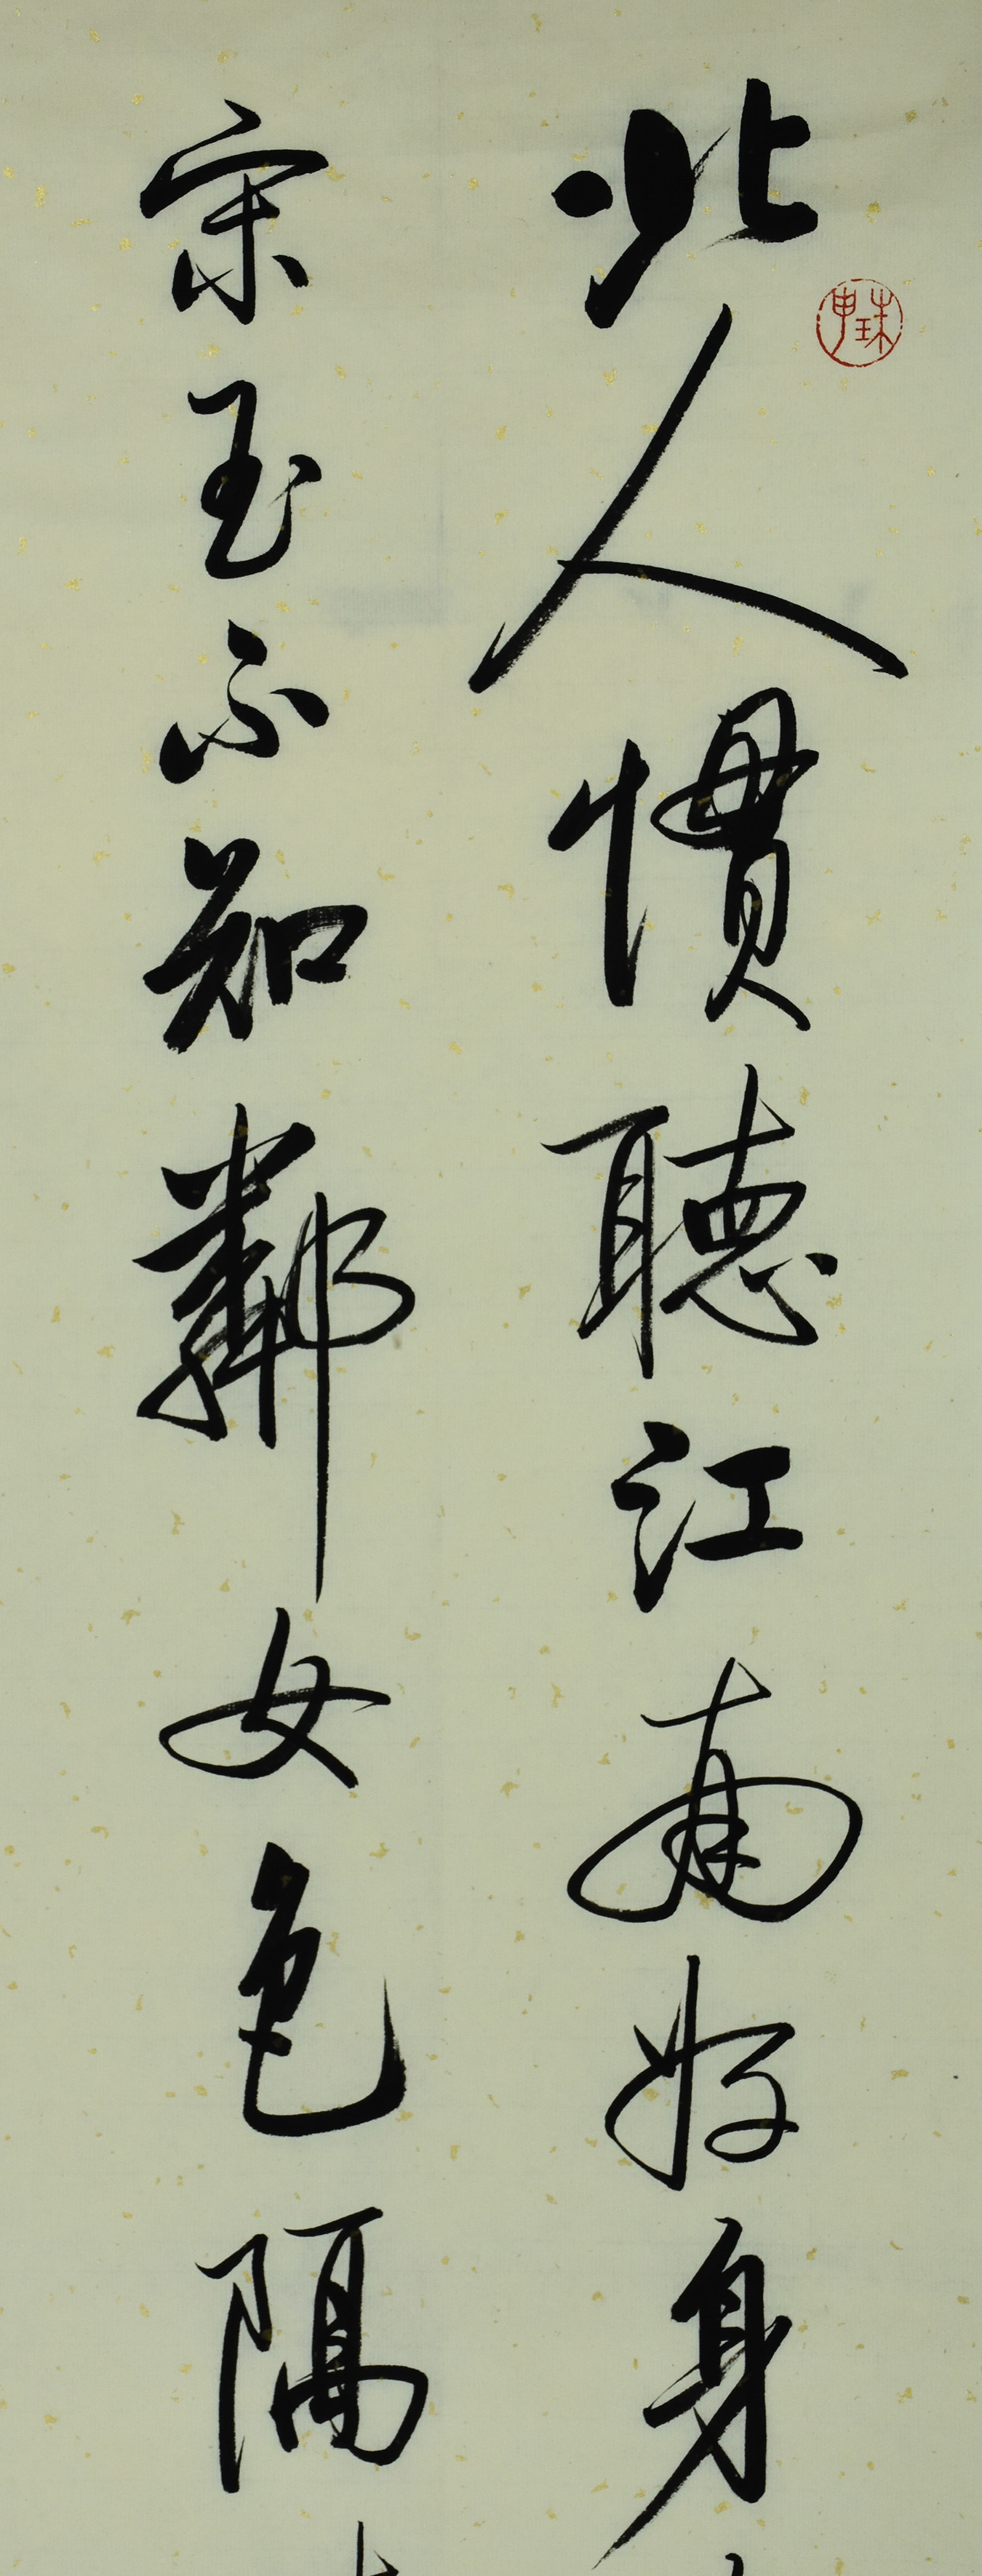 北人慣聽江南好身
宋玉不知鄰女色隔